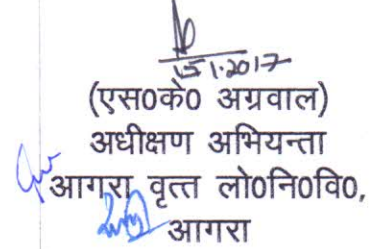 15.1.2017
(एस0के0 अग्रवाल)
अधीक्षण अभियन्ता
आगरा वृत्त लो0नि0वि0,
आगरा